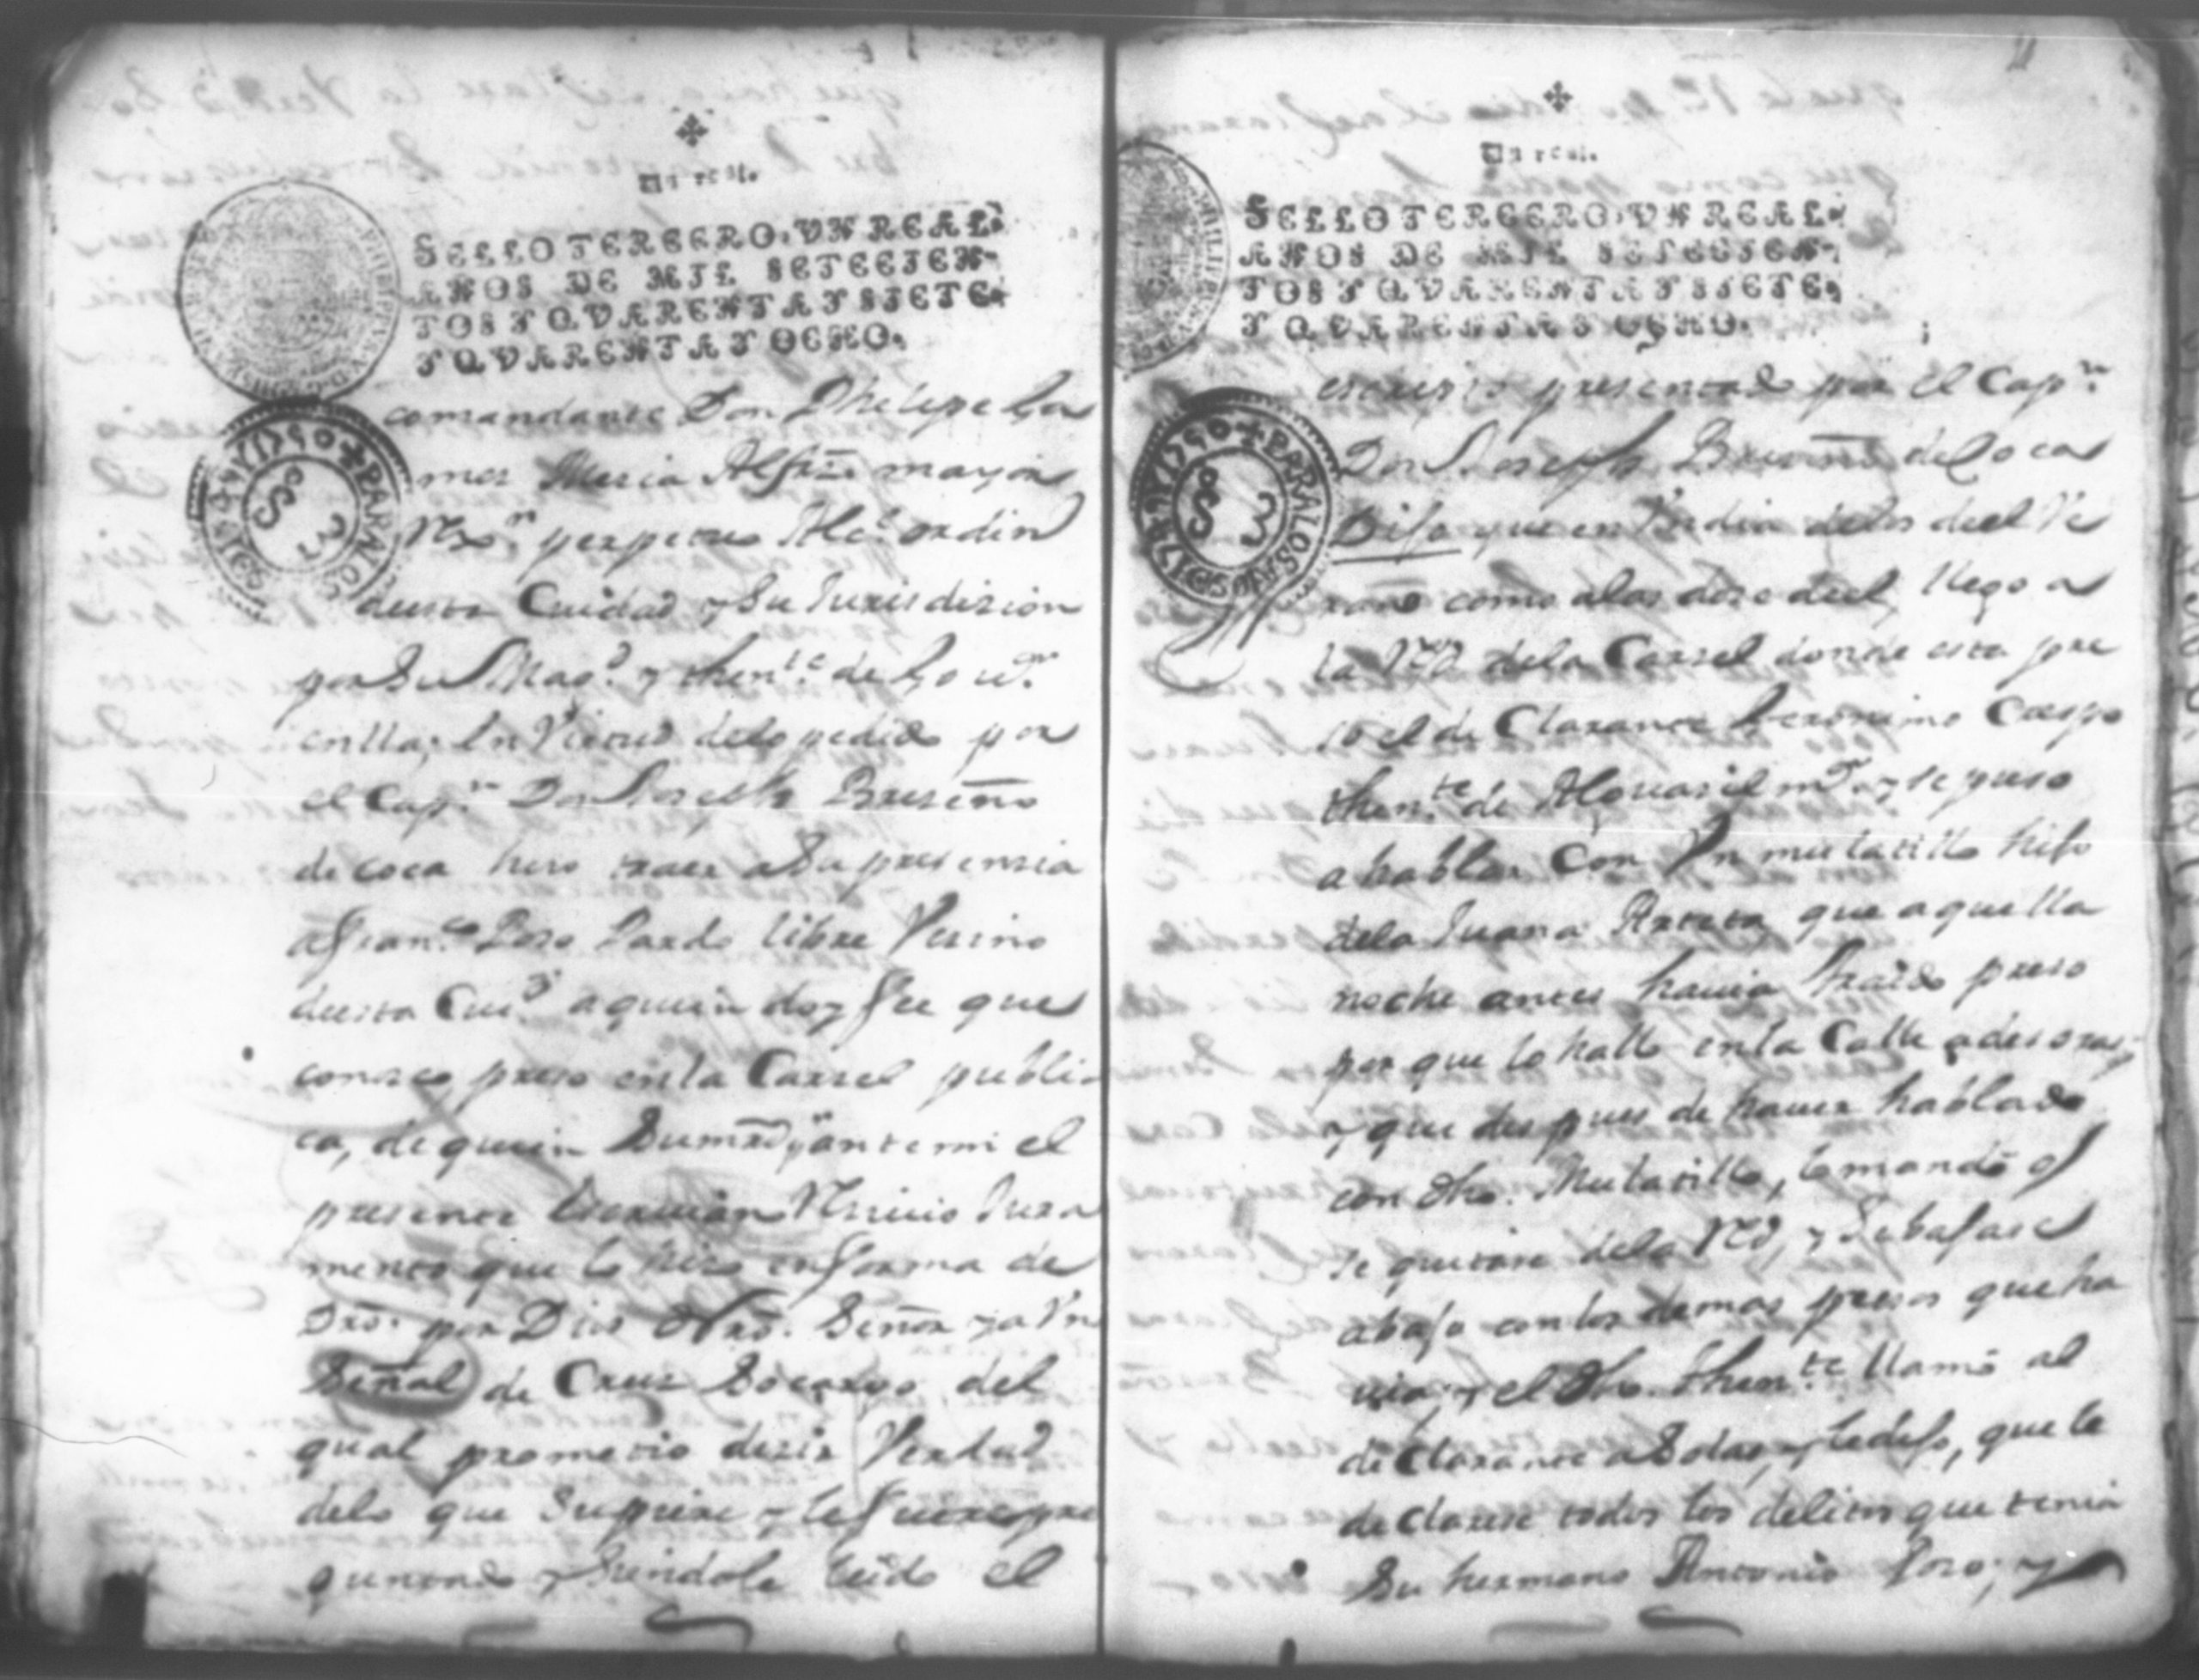 Un real.
SELLO TERCERO, VN REAL,
AÑOS DE MIL SETECIEN-
TOS Y QVARENTA Y SIETE,
Y QVARENTA Y OCHO.
PARA LOS AÑOS DE 1749 Y 1750
S 3
comandante Don Phelipe Ra
mos Alfz. mayor
Rexor. perpetuo Alce. ordino
desta Cuidad y su Jurisdision
por Su Magd. y thente. de Gov.or
en lla; En Virtud delo pedido por
el Capn. Don Joseph Briseño
de coca hiso traer a Su presensia
a Franco. Poso Pardo libre Vesino
desta Cuid. a quien doy fee que
conosco, preso en la Carsel publi
ca, de quien Su mrd y por ante mi el
presente Escrivano Resivio Jura
mento que lo hiso en forma de
Dro. por Dios Nro. Señor y a Vn
Señal de Cruz So cargo del
qual prometio desir Verdad
delo que Supiere y le fuere pre
guntado y Siendole leido el
Un real.
SELLO TERCERO, VN REAL,
AÑOS DE MIL SETECIEN-
TOS Y QVARENTA Y SIETE,
Y QVARENTA Y OCHO.
PARA LOS AÑOS DE 1749 Y 1750
S 3
escripto presentado por el Capn.
Don Joseph Briseño de Coca
Dijo que en Vn dia delos deel Ve
rano como alas dose deel, llego a
la Red dela Carsel donde esta pre
so el de Clarante Geronimo Crespo
thente. de Alguasil mor. y se puso
a hablar Con Vn mulatillo hijo
dela Juana que aquella
noche antes havia traido preso
por que lo hallo en la Calle a desoras;
y que des pues de haver hablado
con dho. Mulatillo, lo mandó q
se quitase dela Red, y Se bajase
abajo con los demas presos que ha
via; y el dho. thente. llamó al
de Clarante a Solas, y le dijo, que le
de Clarase todos los delitos que tenia
Su hermano Antonio Poso; y